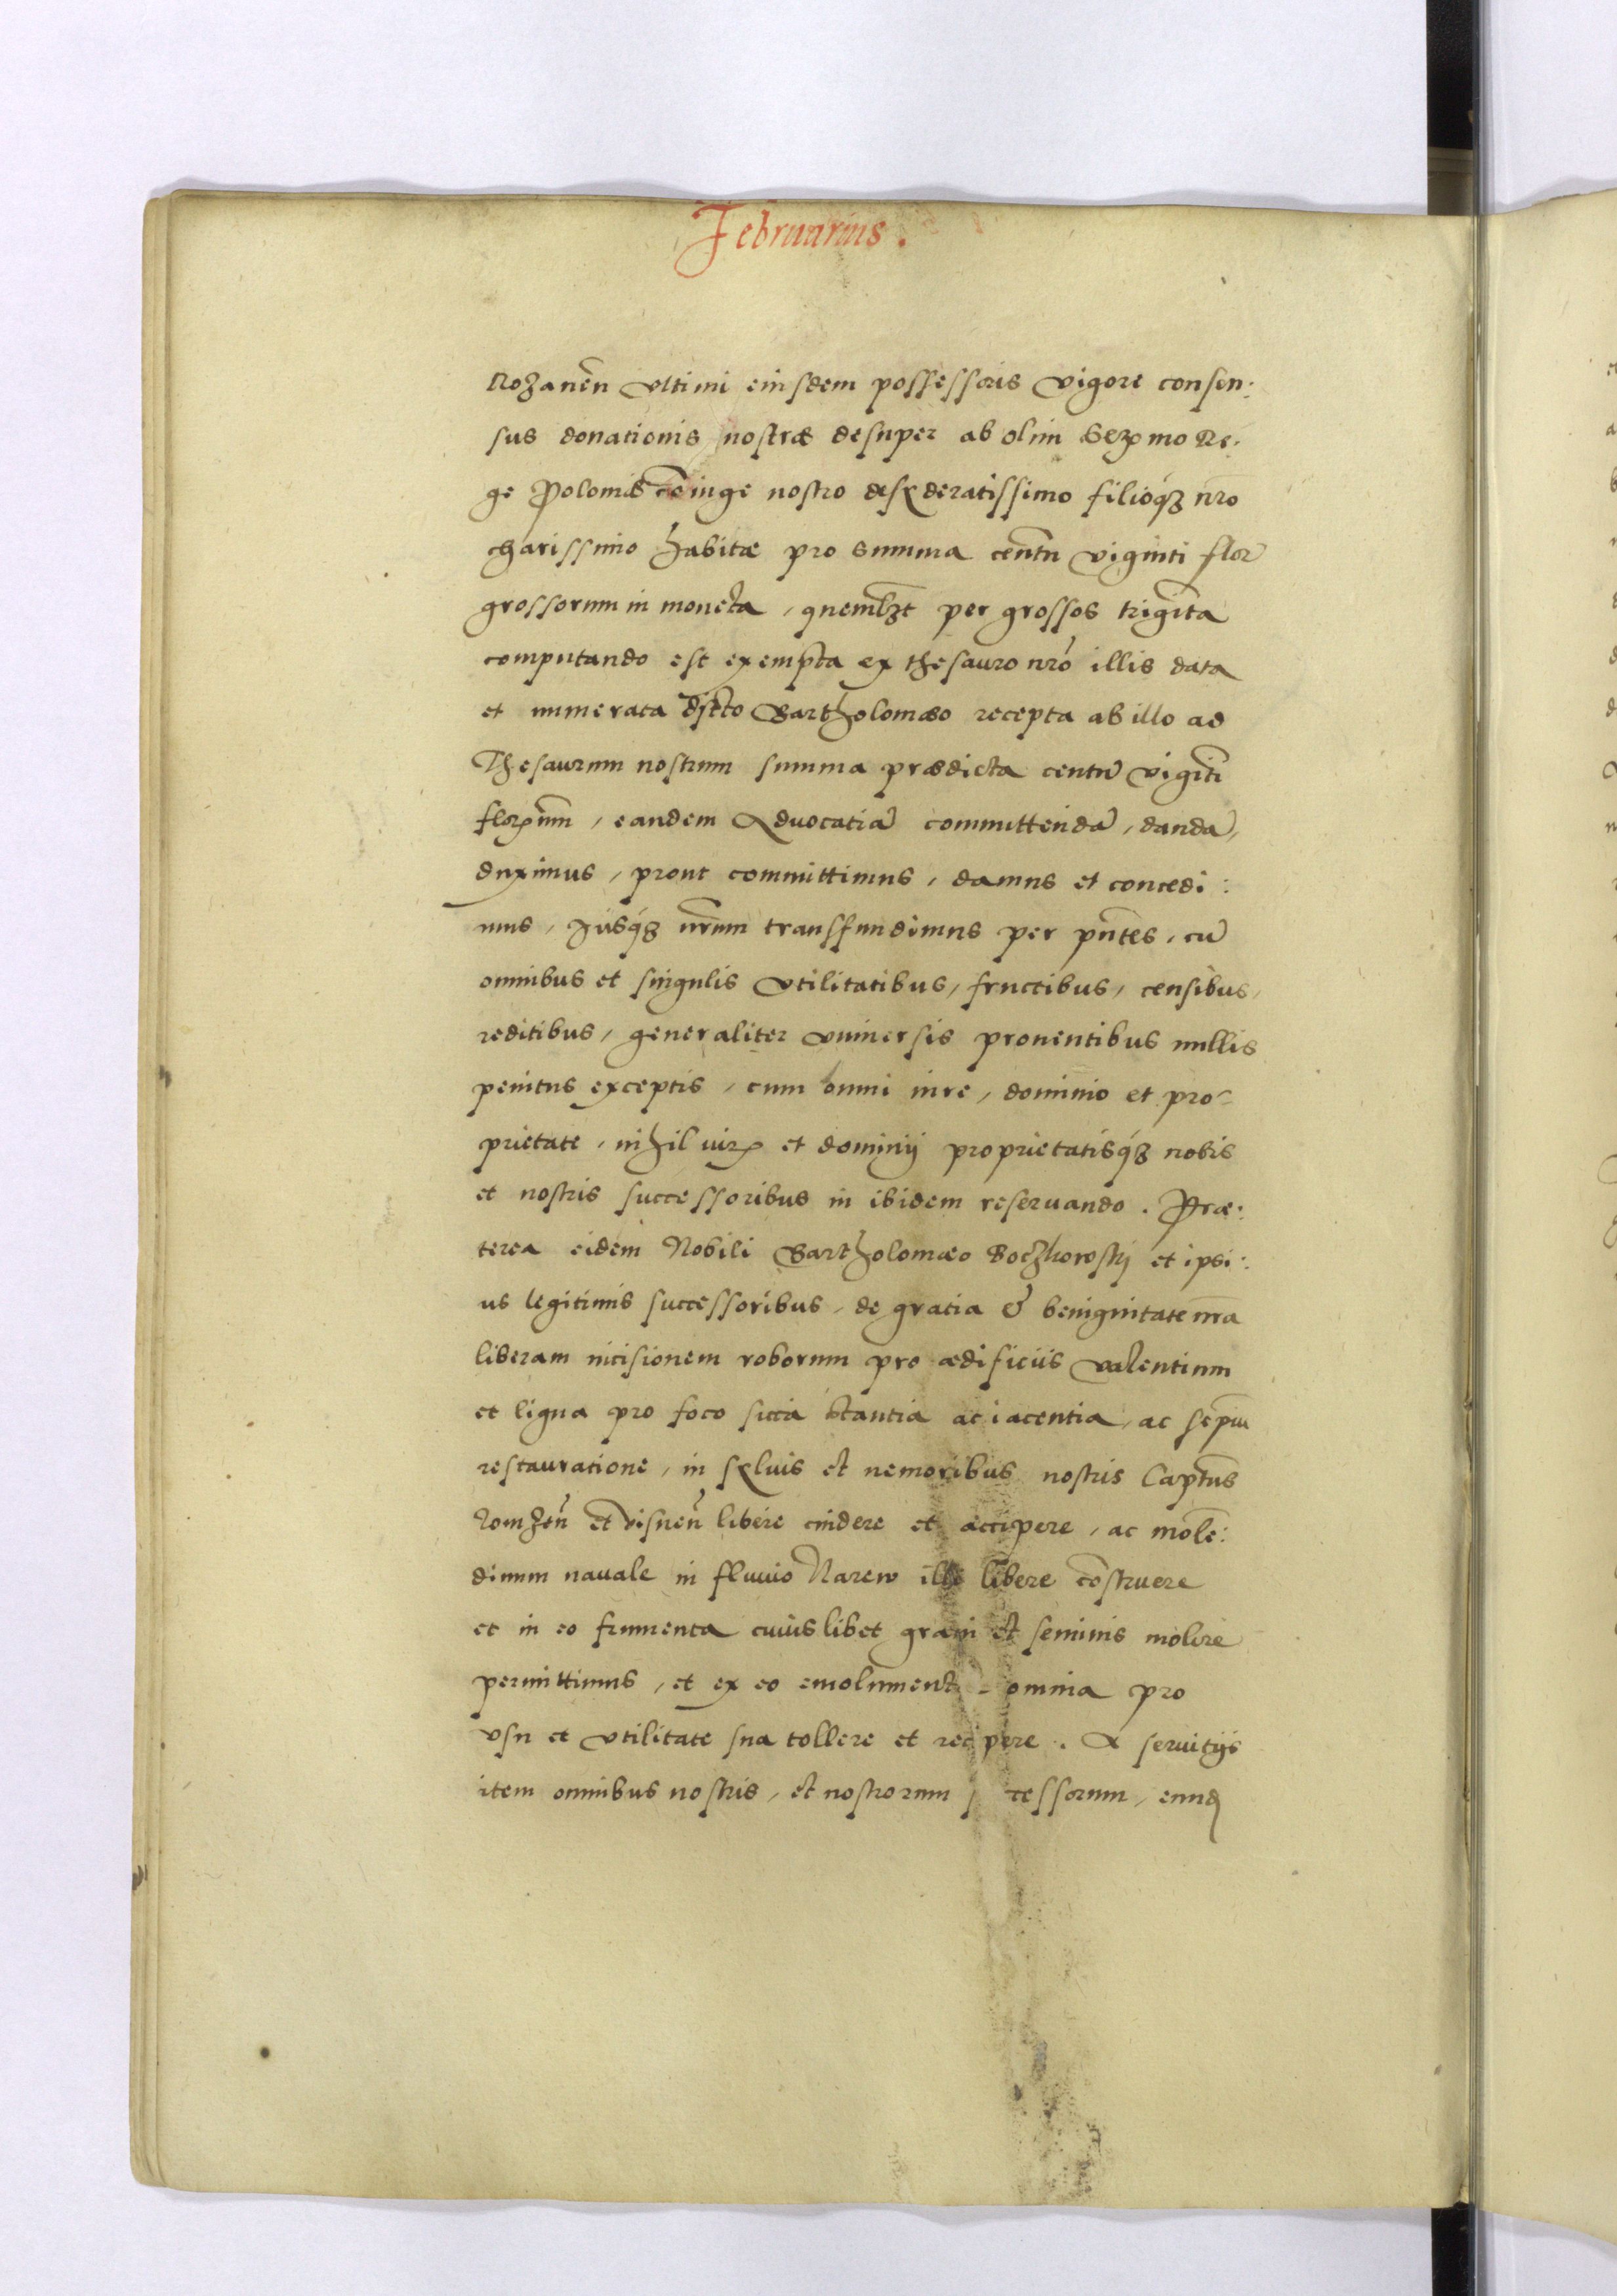 Februarius.
Rozanen̄ vltimi eiusdem possessoris vigore consen:
sus donationis nostræ desuper ab olim Serꝫmo Re:
ge Poloniæ cōiuge nostro desyderatissimo filioq́ꝫ nr̄o
charissimo habitæ pro summa centū viginti flor̄
grossorum in moneta, quemlꝫt per grossos trigīta
computando est exempta ex thesauro nr̄o illis data
et numerata dicto Bartholomæo recepta ab illo ad
Thesaurum nostrum summa prædicta centū vigīti
florꝫnm̄, eandem Aduocatiā committendā, dandā,
duximus, prout committimus, damus et concedi:
mus, Jusq́ꝫ nr̄um transfundimus per pn̄tes, cū
omnibus et singulis vtilitatibus, fructibus, censibus,
reditibus, generaliter vniuersis prouentibus nullis
penitus exceptis, cum omni iure, dominio et pro-
prietate, nihil iurꝫ et dominij proprietatisq́ꝫ nobis
et nostris successoribus in ibidem reseruando. Præ:
terea eidem Nobili Bartholomæo Boczkowskj et ipsi:
us legitimis successoribus, de gratia & benignitate nr̄a
liberam incisionem roborum pro ædificiis valentium
et ligna pro foco sicca stantia ac iacentia, ac sepiū
restauratione, in syluis et nemoribus nostris Captn̄s
Lomzen̄ et Visnen̄ libere cindere et accipere, ac molē:
dinum nauale in fluuio Narew illi libere cōstruere
et in eo frumenta cuiuslibet grani et seminis molere
permittimus, et ex eo emolumenta omnia pro
vsu et vtilitate sua tollere et recipere. A seruitijs
item omnibus nostris, et nostrorum cessorum, eund